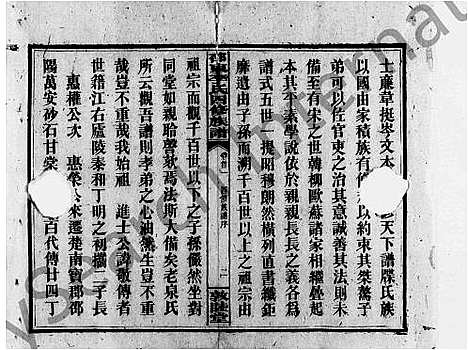 士廉草挺岑文本
天下譜牒氏族
以國由家積族有
以約束其桀驁子
弟可以任官吏之治其意誠善其法則未
備至有宋之世韓柳歐蘇諸家相繼叠起
本其平素學說依於親親長長之義合爲
譜式五世一提昭穆朗然橫列直書纖鉅
靡遺由子孫而溯千百世以上之祖宗由
邵東李氏四修族譜
卷首
二
敦睦堂
祖宗而觀千百世以下之子孫儼然坐對
同堂如親聆謦欬焉法斯大備矣老泉氏
所云觀吾譜則孝弟之心油然生豈不重
哉豈不重哉我始祖 進士公諱敬傳者
世籍江右廬陵泰和丁明之初攜二子長
惠權公次 惠榮
來遷楚南寶郡邵
陽萬安砂石甘棠
百代傳廿四丁